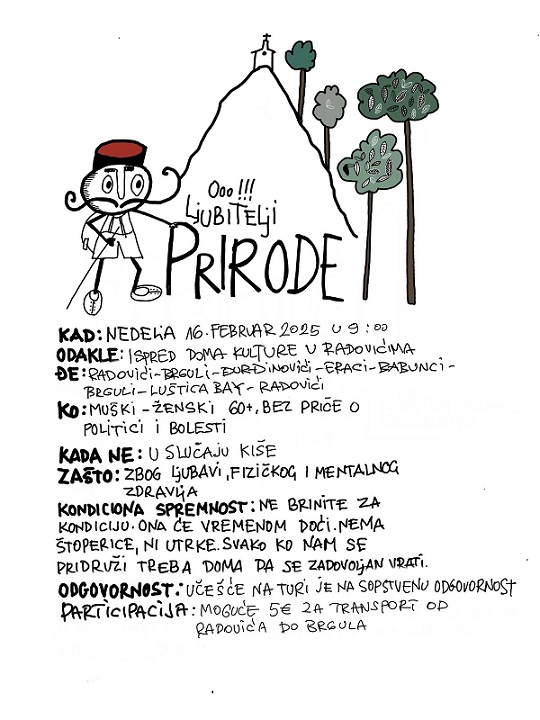 Ooo !!!
LJUBITELJI
PRIRODE
KAD: NEDELJA 16. FEBRUAR 2025 U 9:00
ODAKLE: ISPRED DOMA KULTURE U RADOVIĆIMA
ĐE: RADOVIĆI-BRGULI-ĐURĐINOVIĆI-ERACI-BABUNCI-
BRGULI-LUŠTICA BAY-RADOVIĆI
KO: MUŠKI-ŽENSKI 60+, BEZ PRIČE O
POLITICI I BOLESTI
KADA NE: U SLUČAJU KIŠE
ZAŠTO: ZBOG LJUBAVI, FIZIČKOG I MENTALNOG
ZDRAVLJA
KONDICIONA SPREMNOST: NE BRINITE ZA
KONDICIJU. ONA ĆE VREMENOM DOĆI. NEMA
ŠTOPERICE, NI UTRKE. SVAKO KO NAM SE
PRIDRUŽI TREBA DOMA DA SE ZADOVOLJAN VRATI.
ODGOVORNOST: UČEŠĆE NA TURI JE NA SOPSTVENU ODGOVORNOST
PARTICIPACIJA: MOGUĆE 5€ ZA TRANSPORT OD
RADOVIĆA DO BRGULA